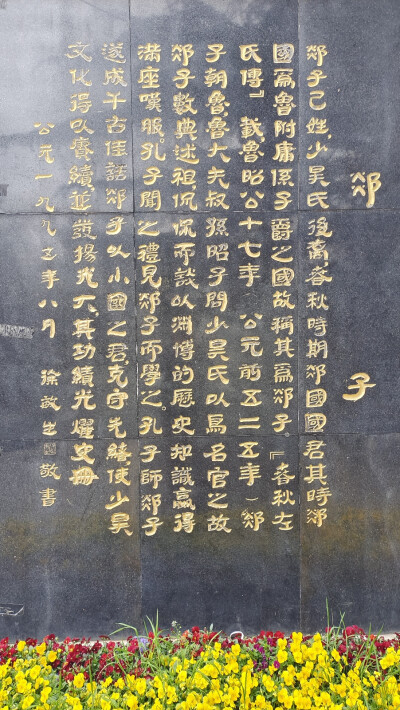 郯子
郯子己姓,少昊氏後裔,春秋時期郯國國君其時郯
國爲魯附庸係子爵之國故稱其爲郯子。『春秋左
氏傳』載魯昭公十七年(公元前五二五年)郯
子朝魯,魯大夫叔孫昭子問少昊氏以鳥名官之故
郯子數典述祖,侃侃而談以淵博的歷史知識贏得
滿座嘆服。孔子聞之禮見郯子而學之。孔子師郯子
遂成千古佳話郯子以小國之君克守先緒,使少昊
文化得以賡續,並發揚光大,其功績光耀史冊
公元一九九五年八月 徐敬書